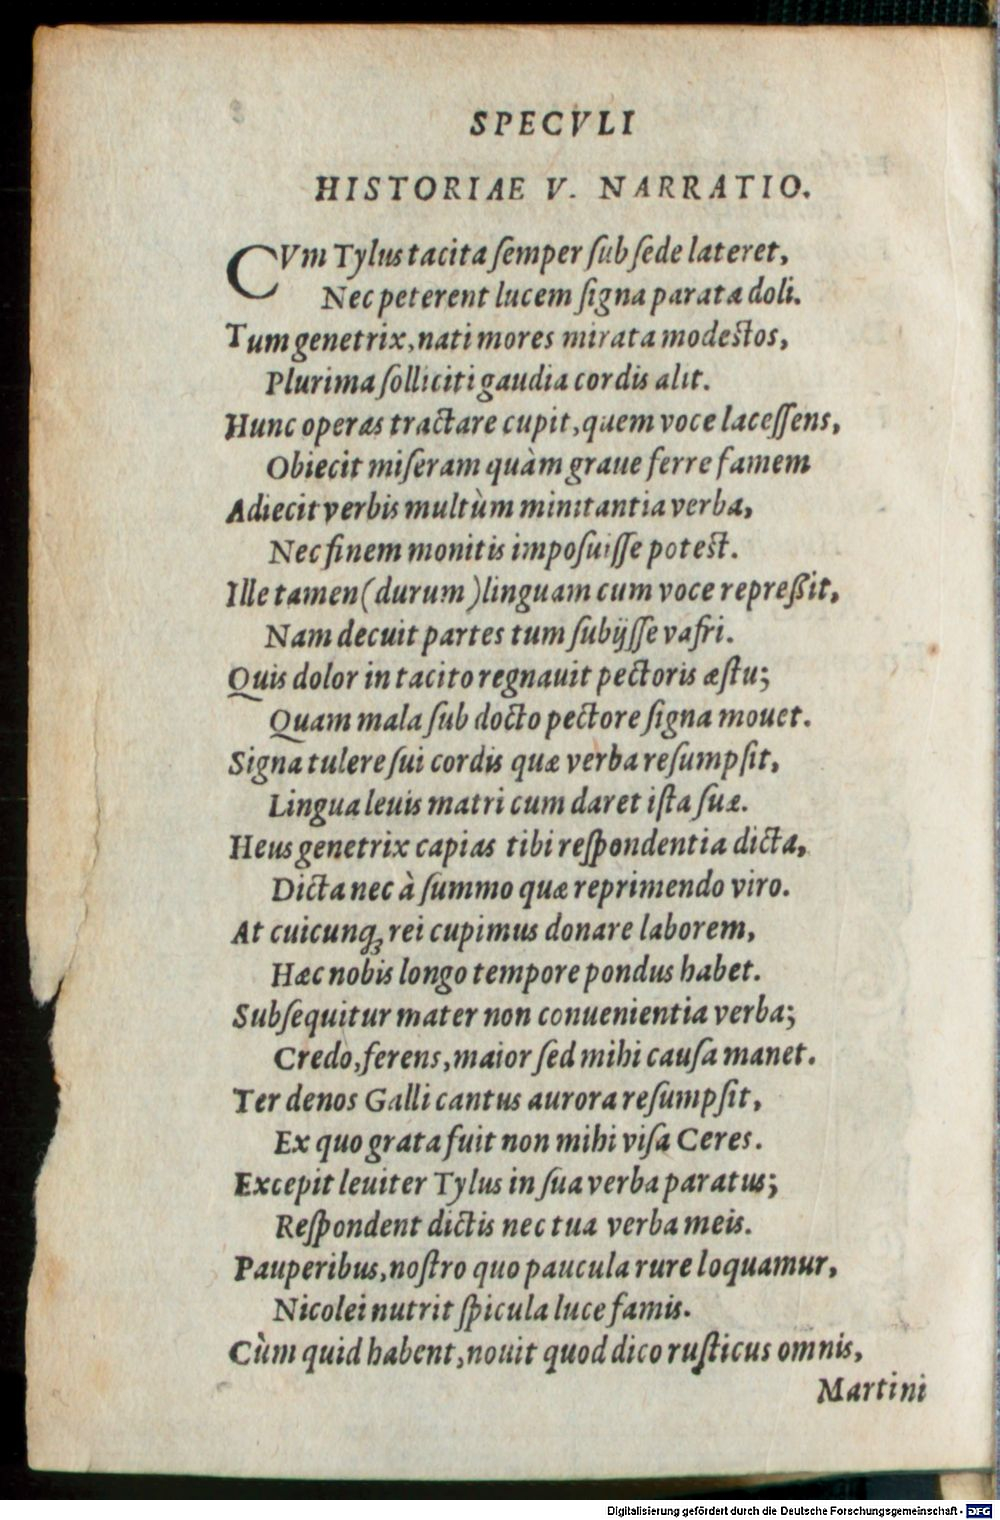 SPECVLI
HISTORIAE V. NARRATIO.
CVm Tylus tacita ſemper ſub ſede lateret,
Nec peterent lucem ſigna parata doli.
Tum genetrix, nati mores mirata modestos,
Plurima ſolliciti gaudia cordis alit.
Hunc operas tractare cupit, quem voce laceſſens,
Obiecit miſeram quàm graue ferre famem
Adiecit verbis multùm minitantia verba,
Nec finem monitis impoſuiſſe potest.
Ille tamen (durum) linguam cum voce repreßit,
Nam decuit partes tum ſubijſſe vafri.
Quis dolor in tacito regnauit pectoris æſtu;
Quam mala ſub docto pectore ſigna mouet.
Signa tulere ſui cordis quæ verba reſumpſit,
Lingua leuis matri cum daret iſta ſuæ.
Heus genetrix capias tibi reſpondentia dicta,
Dicta nec à ſummo quæ reprimendo viro.
At cuicunqꝫ rei cupimus donare laborem,
Hæc nobis longo tempore pondus habet.
Subſequitur mater non conuenientia verba;
Credo, ferens, maior ſed mihi cauſa manet.
Ter denos Galli cantus aurora reſumpſit,
Ex quo grata fuit non mihi viſa Ceres.
Excepit leuiter Tylus in ſua verba paratus;
Reſpondent dictis nec tua verba meis.
Pauperibus, noſtro quo paucula rure loquamur,
Nicolei nutrit ſpicula luce famis.
Cùm quid habent, nouit quod dico ruſticus omnis,
Martini
Digitalisierung gefördert durch die Deutsche Forschungsgemeinschaft - DFG